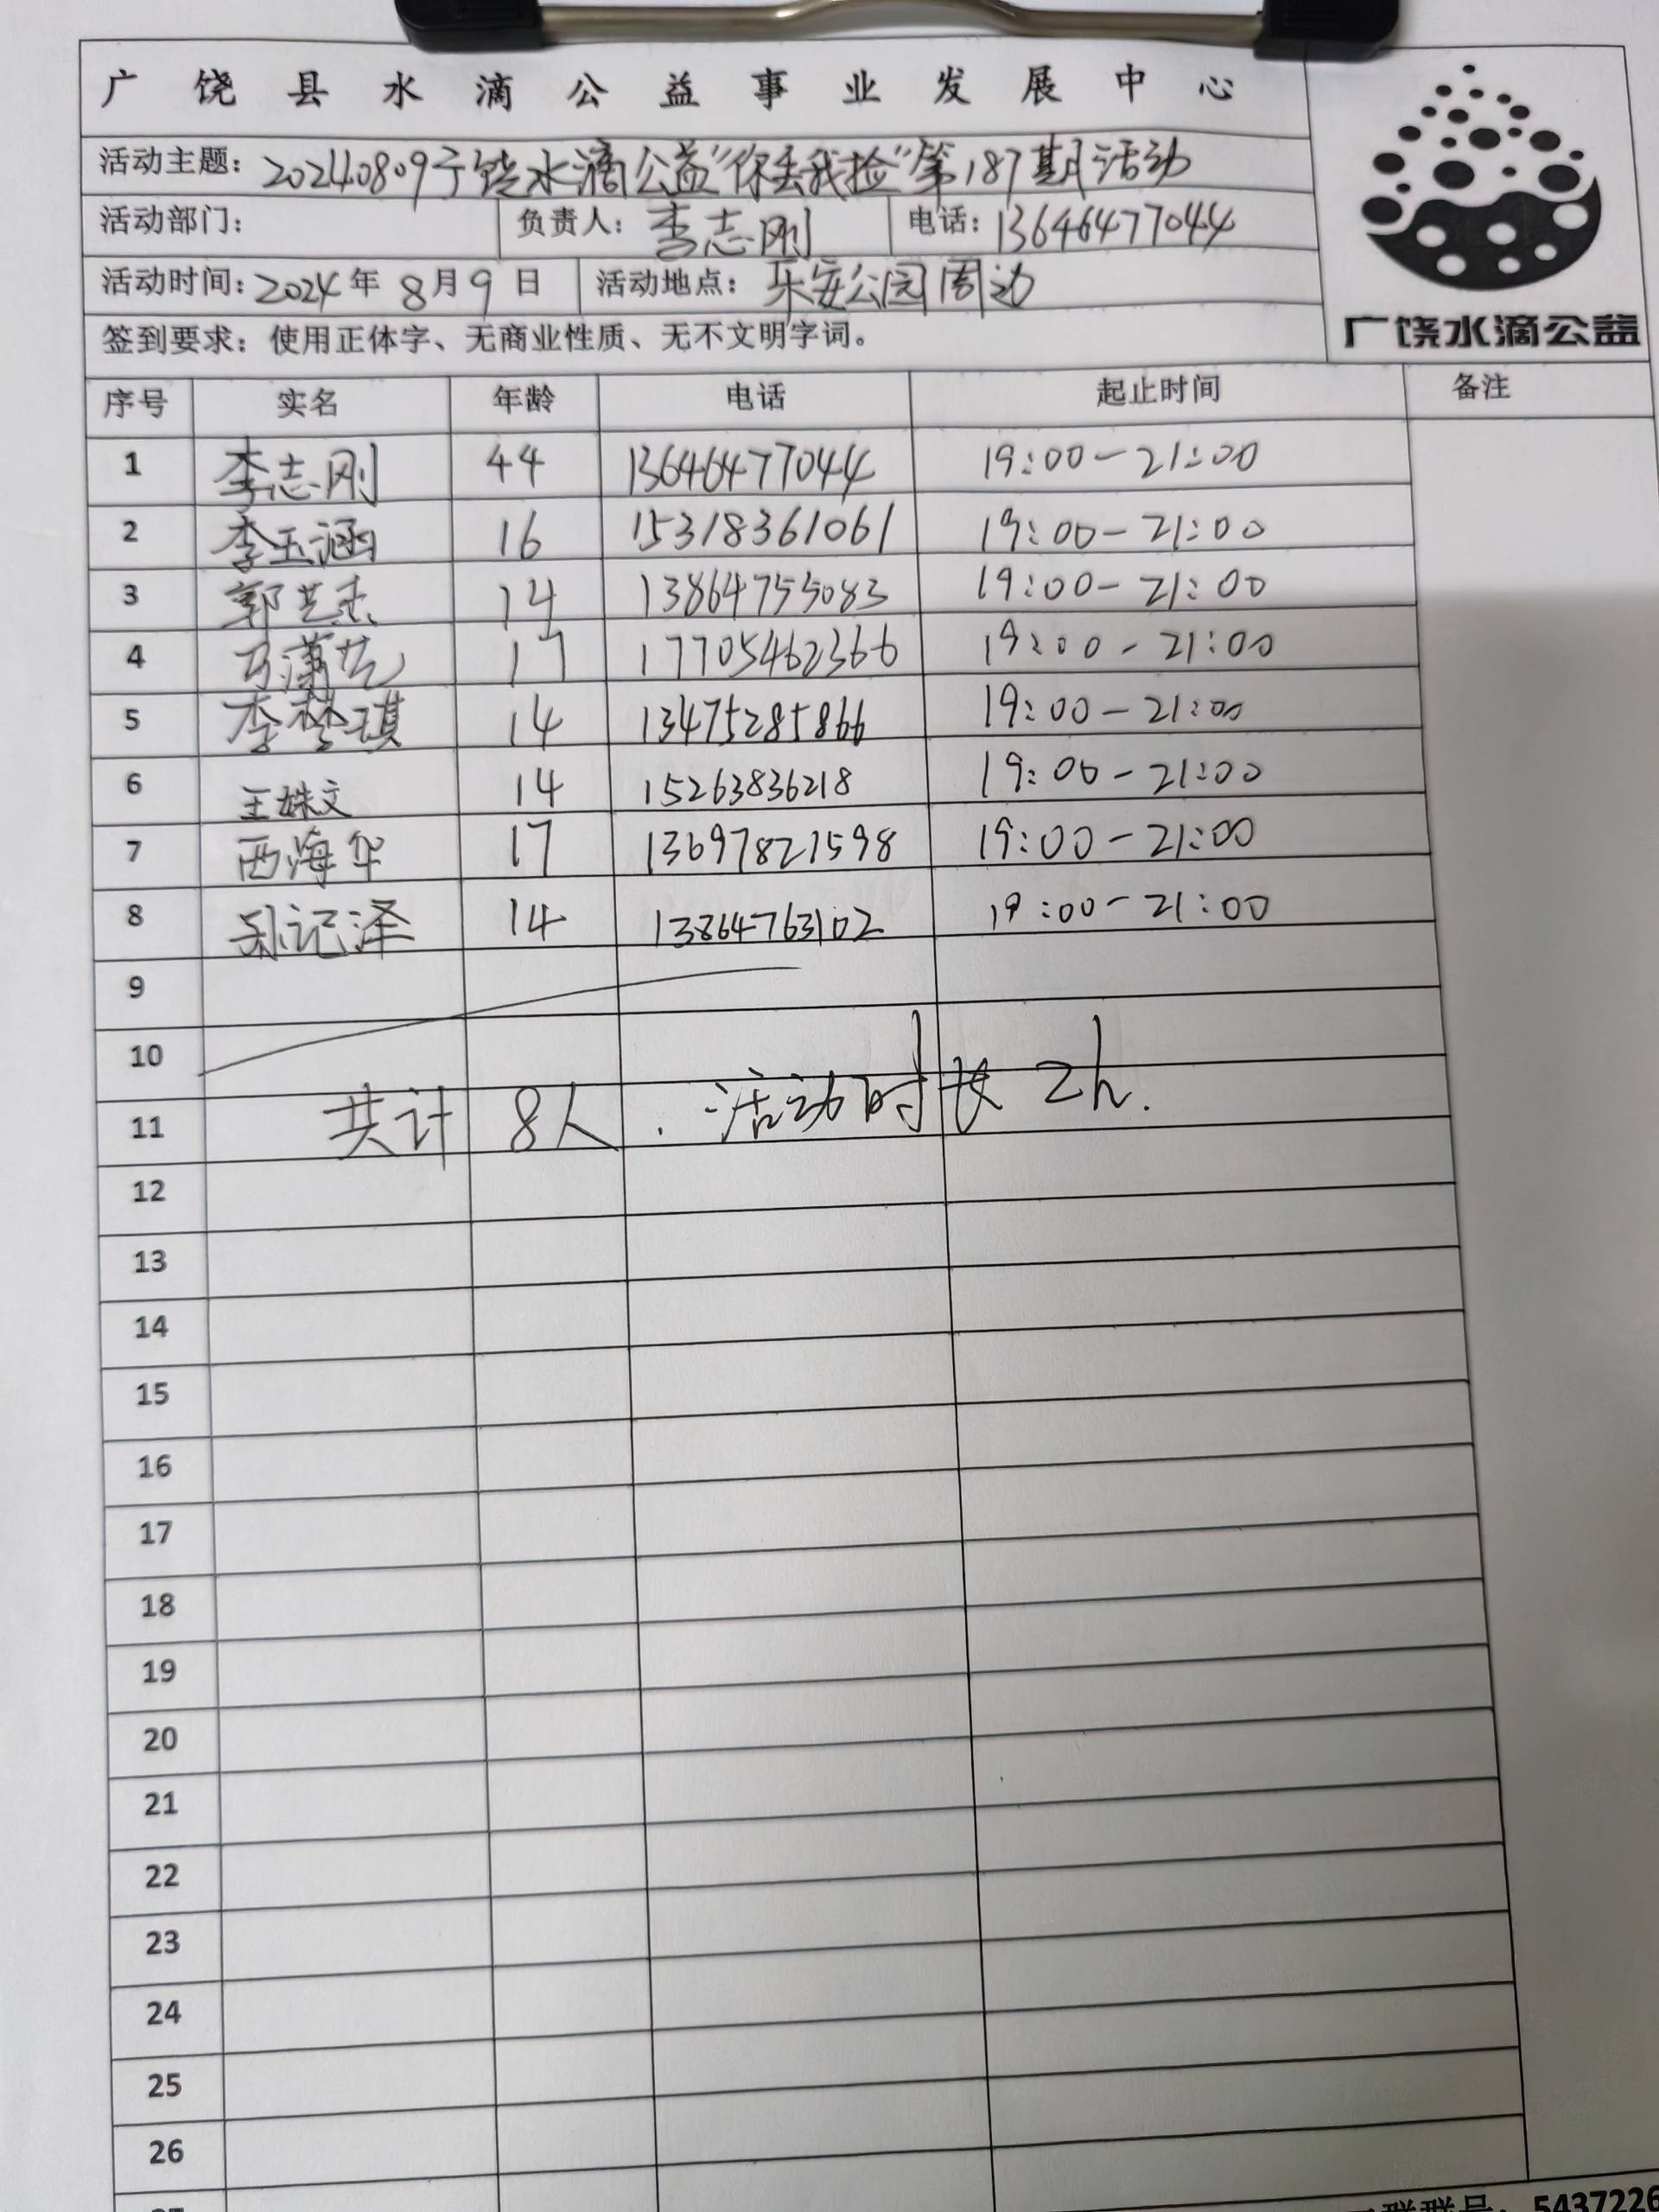 广饶县水滴公益事业发展中心
活动主题：20240809广饶水滴公益"你丢我捡"第187期活动
活动部门： 负责人：李志刚 电话：13646477044
活动时间：2024年8月9日 活动地点：乐安公园周边
签到要求：使用正体字、无商业性质、无不文明字词。
广饶水滴公益
序号 实名 年龄 电话 起止时间 备注
1 李志刚 44 13646477044 19:00-21:00
2 李玉涵 16 15318361061 19:00-21:00
3 郭艺 14 13864755083 19:00-21:00
4 潇艺 17 17705462366 19:00-21:00
5 李梦琪 14 13475285866 19:00-21:00
6 王姝文 14 15263836218 19:00-21:00
7 西海华 17 13697821598 19:00-21:00
8 记泽 14 13864763102 19:00-21:00
9
10
11 共计8人.活动时长2h.
12
13
14
15
16
17
18
19
20
21
22
23
24
25
26
5437226